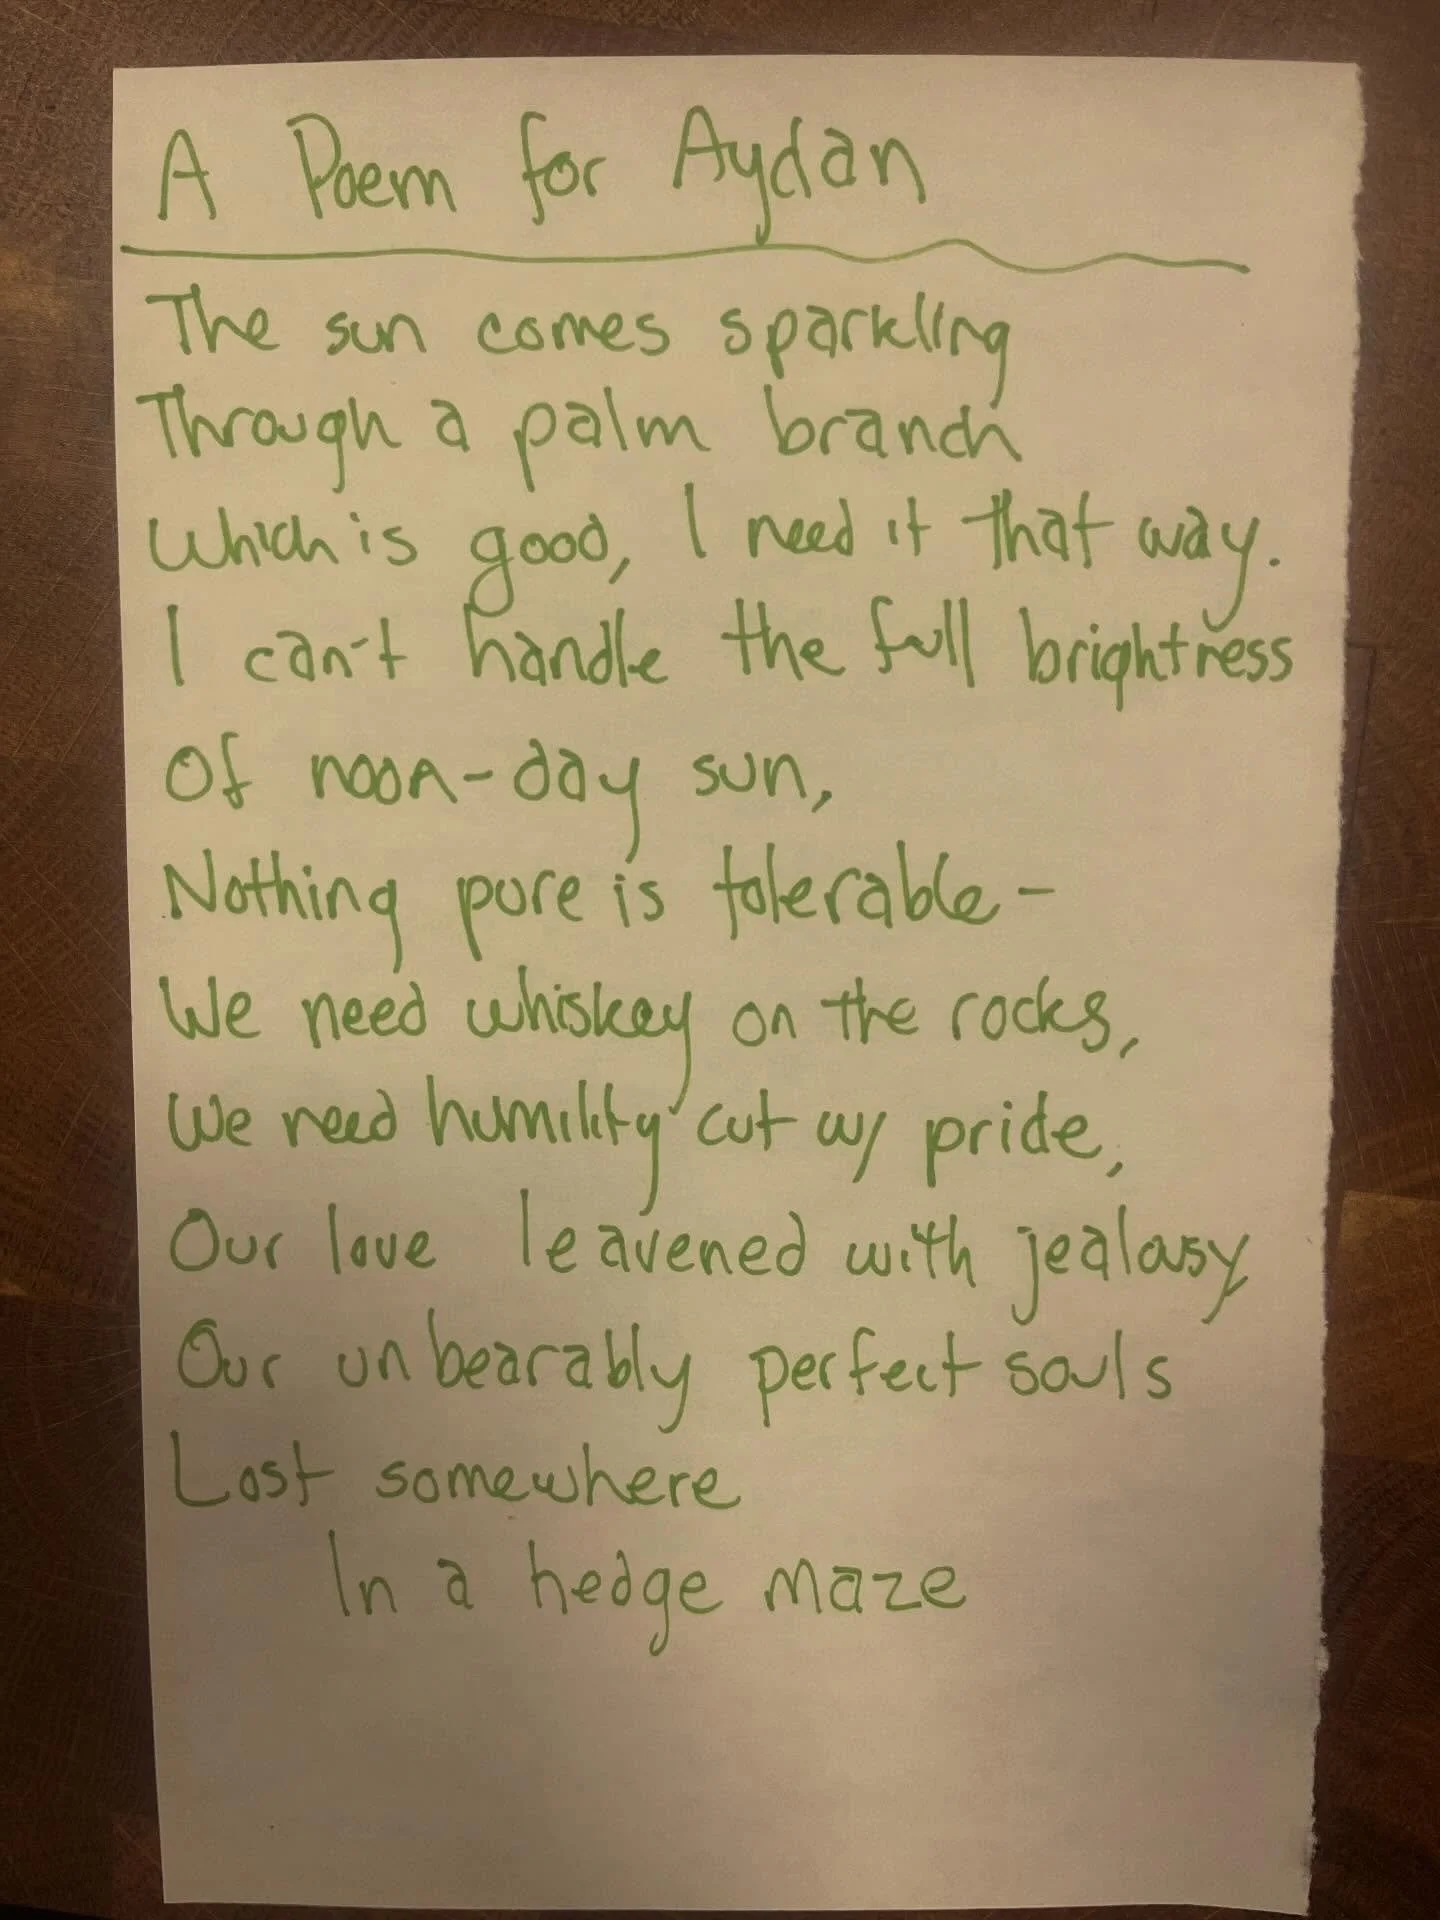 A Poem for Aydan
The sun comes sparkling
Through a palm branch
Which is good, I need it that way.
I can't handle the full brightness
Of noon-day sun,
Nothing pure is tolerable-
We need whiskey on the rocks,
We need humility cut w/ pride,
Our love leavened with jealousy
Our unbearably perfect souls
Lost somewhere
In a hedge maze